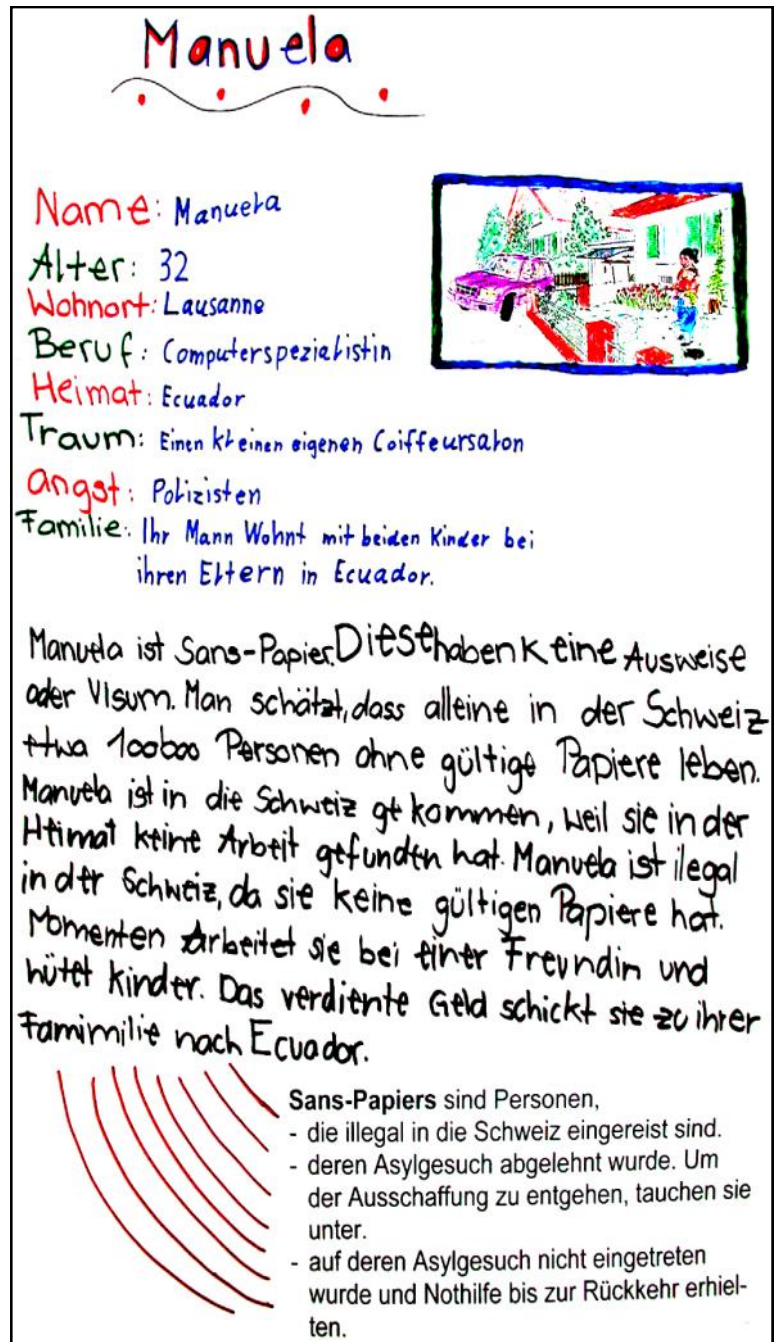 Manuela
Name: Manuela
Alter: 32
Wohnort: Lausanne
Beruf: Computerspezialistin
Heimat: Ecuador
Traum: Einen kleinen eigenen Coiffeursalon
angst: Polizisten
Familie: Ihr Mann Wohnt mit beiden Kinder bei
ihren Eltern in Ecuador.
Manuela ist Sans-Papier. Diese haben keine Ausweise
oder Visum. Man schätzt, dass alleine in der Schweiz
etwa 100000 Personen ohne gültige Papiere leben.
Manuela ist in die Schweiz gekommen, weil sie in der
Heimat keine Arbeit gefunden hat. Manuela ist ilegal
in der Schweiz, da sie keine gültigen Papiere hat.
Momenten Arbeitet sie bei einer Freundin und
hütet kinder. Das verdiente Geld schickt sie zu ihrer
Famimilie nach Ecuador.
Sans-Papiers sind Personen,
- die illegal in die Schweiz eingereist sind.
- deren Asylgesuch abgelehnt wurde. Um
der Ausschaffung zu entgehen, tauchen sie
unter.
- auf deren Asylgesuch nicht eingetreten
wurde und Nothilfe bis zur Rückkehr erhiel-
ten.